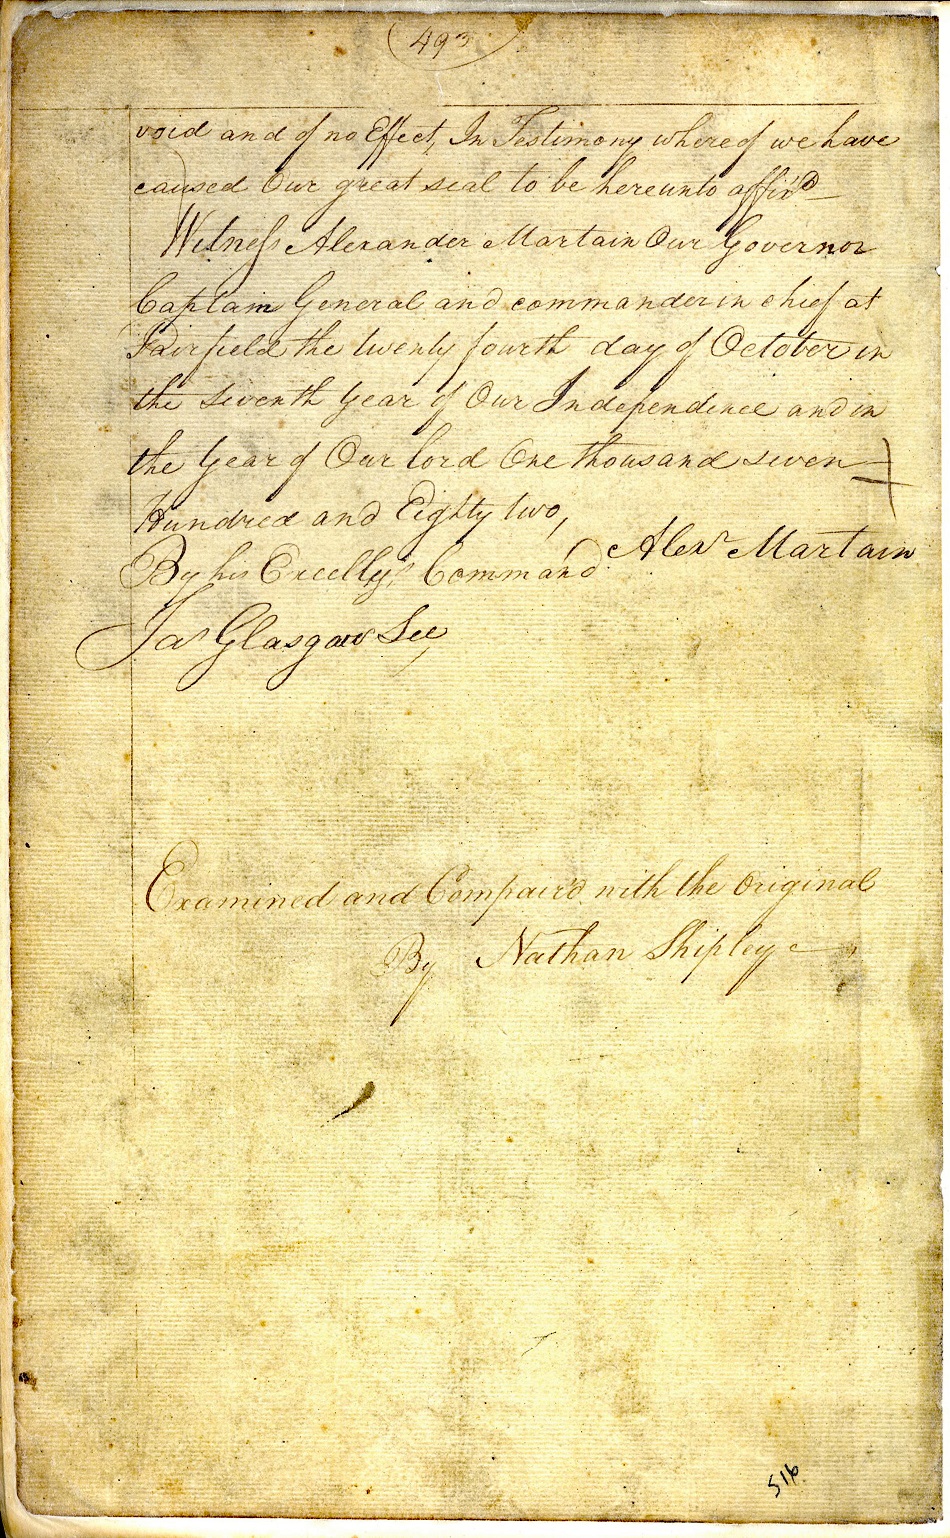 493
void and of no Effect, In Testimony whereof we have
caused Our great seal to be hereunto affix'd
Witness Alexander Martain Our Governor
Captain General and commander in chief at
Fairfield the twenty fourth day of October in
the seventh year of Our Independence and in
the year of Our lord One thousand seven
Hundred and Eighty two,
Alexr Martain
By his Excellys Command
Jas Glasgow Sec
Examined and Compair'd with the Original
By Nathan Shipley
516